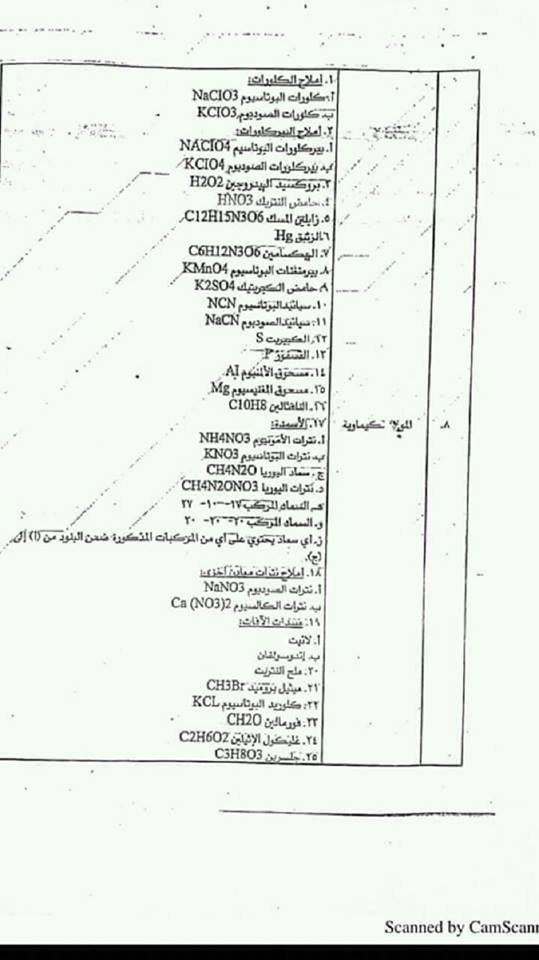 ١. املاح الكلورات:
أ. كلورات البوتاسيوم NaClO3
ب. كلورات الصوديوم KClO3
٢. أملاح البيركلورات:
أ. بيركلورات البوتاسيم NAClO4
ب. بيركلورات الصوديوم KClO4
٣. بروكسيد الهيدروجين H2O2
٤. حامض النتريك HNO3
٥. زايلين المسك C12H15N3O6
٦. الزئبق Hg
٧. الهكسامين C6H12N3O6
٨. بيرمنغنات البوتاسيوم KMnO4
٩. حامض الكبريتيك K2SO4
١٠. سيانيد البوتاسيوم NCN
١١. سيانيد الصوديوم NaCN
١٢. الكبريت S
١٣. الفسفور P
١٤. مسحوق الألمنيوم Al
١٥. مسحوق المغنيسيوم Mg
١٦. النافثالين C10H8
١٧. الأسمدة:
٨. المواد الكيماوية
أ. نترات الأمونيوم NH4NO3
ب. نترات البوتاسيوم KNO3
ج. سماد اليوريا CH4N2O
د. نترات اليوريا CH4N2ONO3
هـ. السماد المركب ٢٧-١٠-١٧
و. السماد المركب ٢٠-٢٠-٢٠
ز. أي سماد يحتوي على أي من المركبات المذكورة ضمن البنود من (أ) إلى
(ج).
١٨. املاح نترات معادن أخرى:
أ. نترات الصوديوم NaNO3
ب. نترات الكالسيوم Ca (NO3)2
١٩. مبيدات الآفات:
أ. لانيت
ب. إندوسولفان
٢٠. ملح النتريت
٢١. ميثيل بروميد CH3Br
٢٢. كلوريد البوتاسيوم KCL
٢٣. فورمالين CH2O
٢٤. غليكول الإثيلين C2H6O2
٢٥. جلسرين C3H8O3
Scanned by CamScann